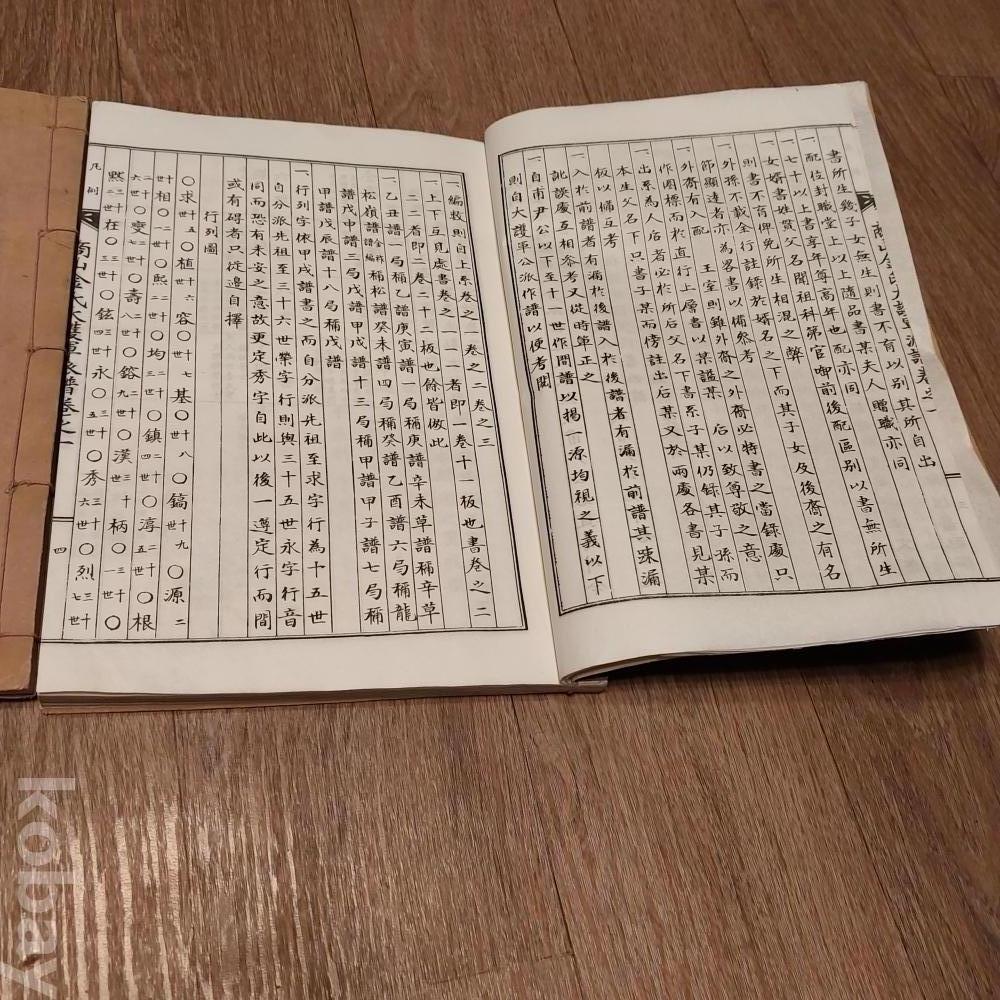 書所生幾子女無生則書不育以別其所自出
一配位封職堂上以上隨品書某夫人贈職亦同
一七十以上書享年尊高年也配亦同
一女婿書姓貫父名聞祖科第官啣前後配區別以書無所生
則書不育俾免所生相混之弊
一外孫不載全行註錄於婿名之下而其子女及後裔之有名
節顯達者亦爲畧書以備叅考
一外裔有入配 王室則雖外裔之外裔必特書之當錄處只
作圈標而於直行上層書以某謚某 后以致尊敬之意
一出系爲人后者必於所后父名下書系子某仍錄其子孫而
本生父名下只書子某而傍註出后某又於兩處各書見某
板以備互考
一入於前譜者有漏於後譜入於後譜者有漏於前譜其踈漏
訛誤處互相叅考又從時第正之
一自甫尹公以下至十一世作間譜以揭一源均視之義以下
則自大護軍公派作譜以便考閱
一編數則自上系卷之一卷之二卷之三
一上下互見處書卷之一一一者即一卷十一板也書卷之二
二二者即二卷二十二板也餘皆倣此
一乙丑譜局稱乙譜庚寅譜一局稱庚辛未草譜稱辛草
松嶺譜金稱譜編稱松譜癸未譜四局稱癸譜乙酉譜六局稱龍
譜戊申譜三局戊譜甲戌譜十三局稱甲譜甲子譜七局稱
甲譜戊辰譜十八局稱戊譜
一行列字依甲戌譜書之而自分派先祖至求字行爲十五世
自分派先祖至三十六世榮字行則與三十五世永字行音
同而恐有未安之意故更定秀字自此以後一遵定行而間
或有碍者只從邊自擇
行列圖
〇求十五世〇植十六世 容〇十七世 基〇十八世 〇鎬十九世 〇源二
十世相〇二十一世〇熙二十二世〇均二十三世〇鎮二十四世〇淳二十五世〇根
二十六世〇燮二十七世〇壽二十八世〇鎔二十九世〇漢三十世柄〇三十一世〇
熒三十二世在〇三十三世〇鉉三十四世永〇三十五世〇秀三十六世〇烈三十七世
凡例
商山金氏大護軍派譜卷之一
四
商山金氏大護軍派譜卷之一
kobay